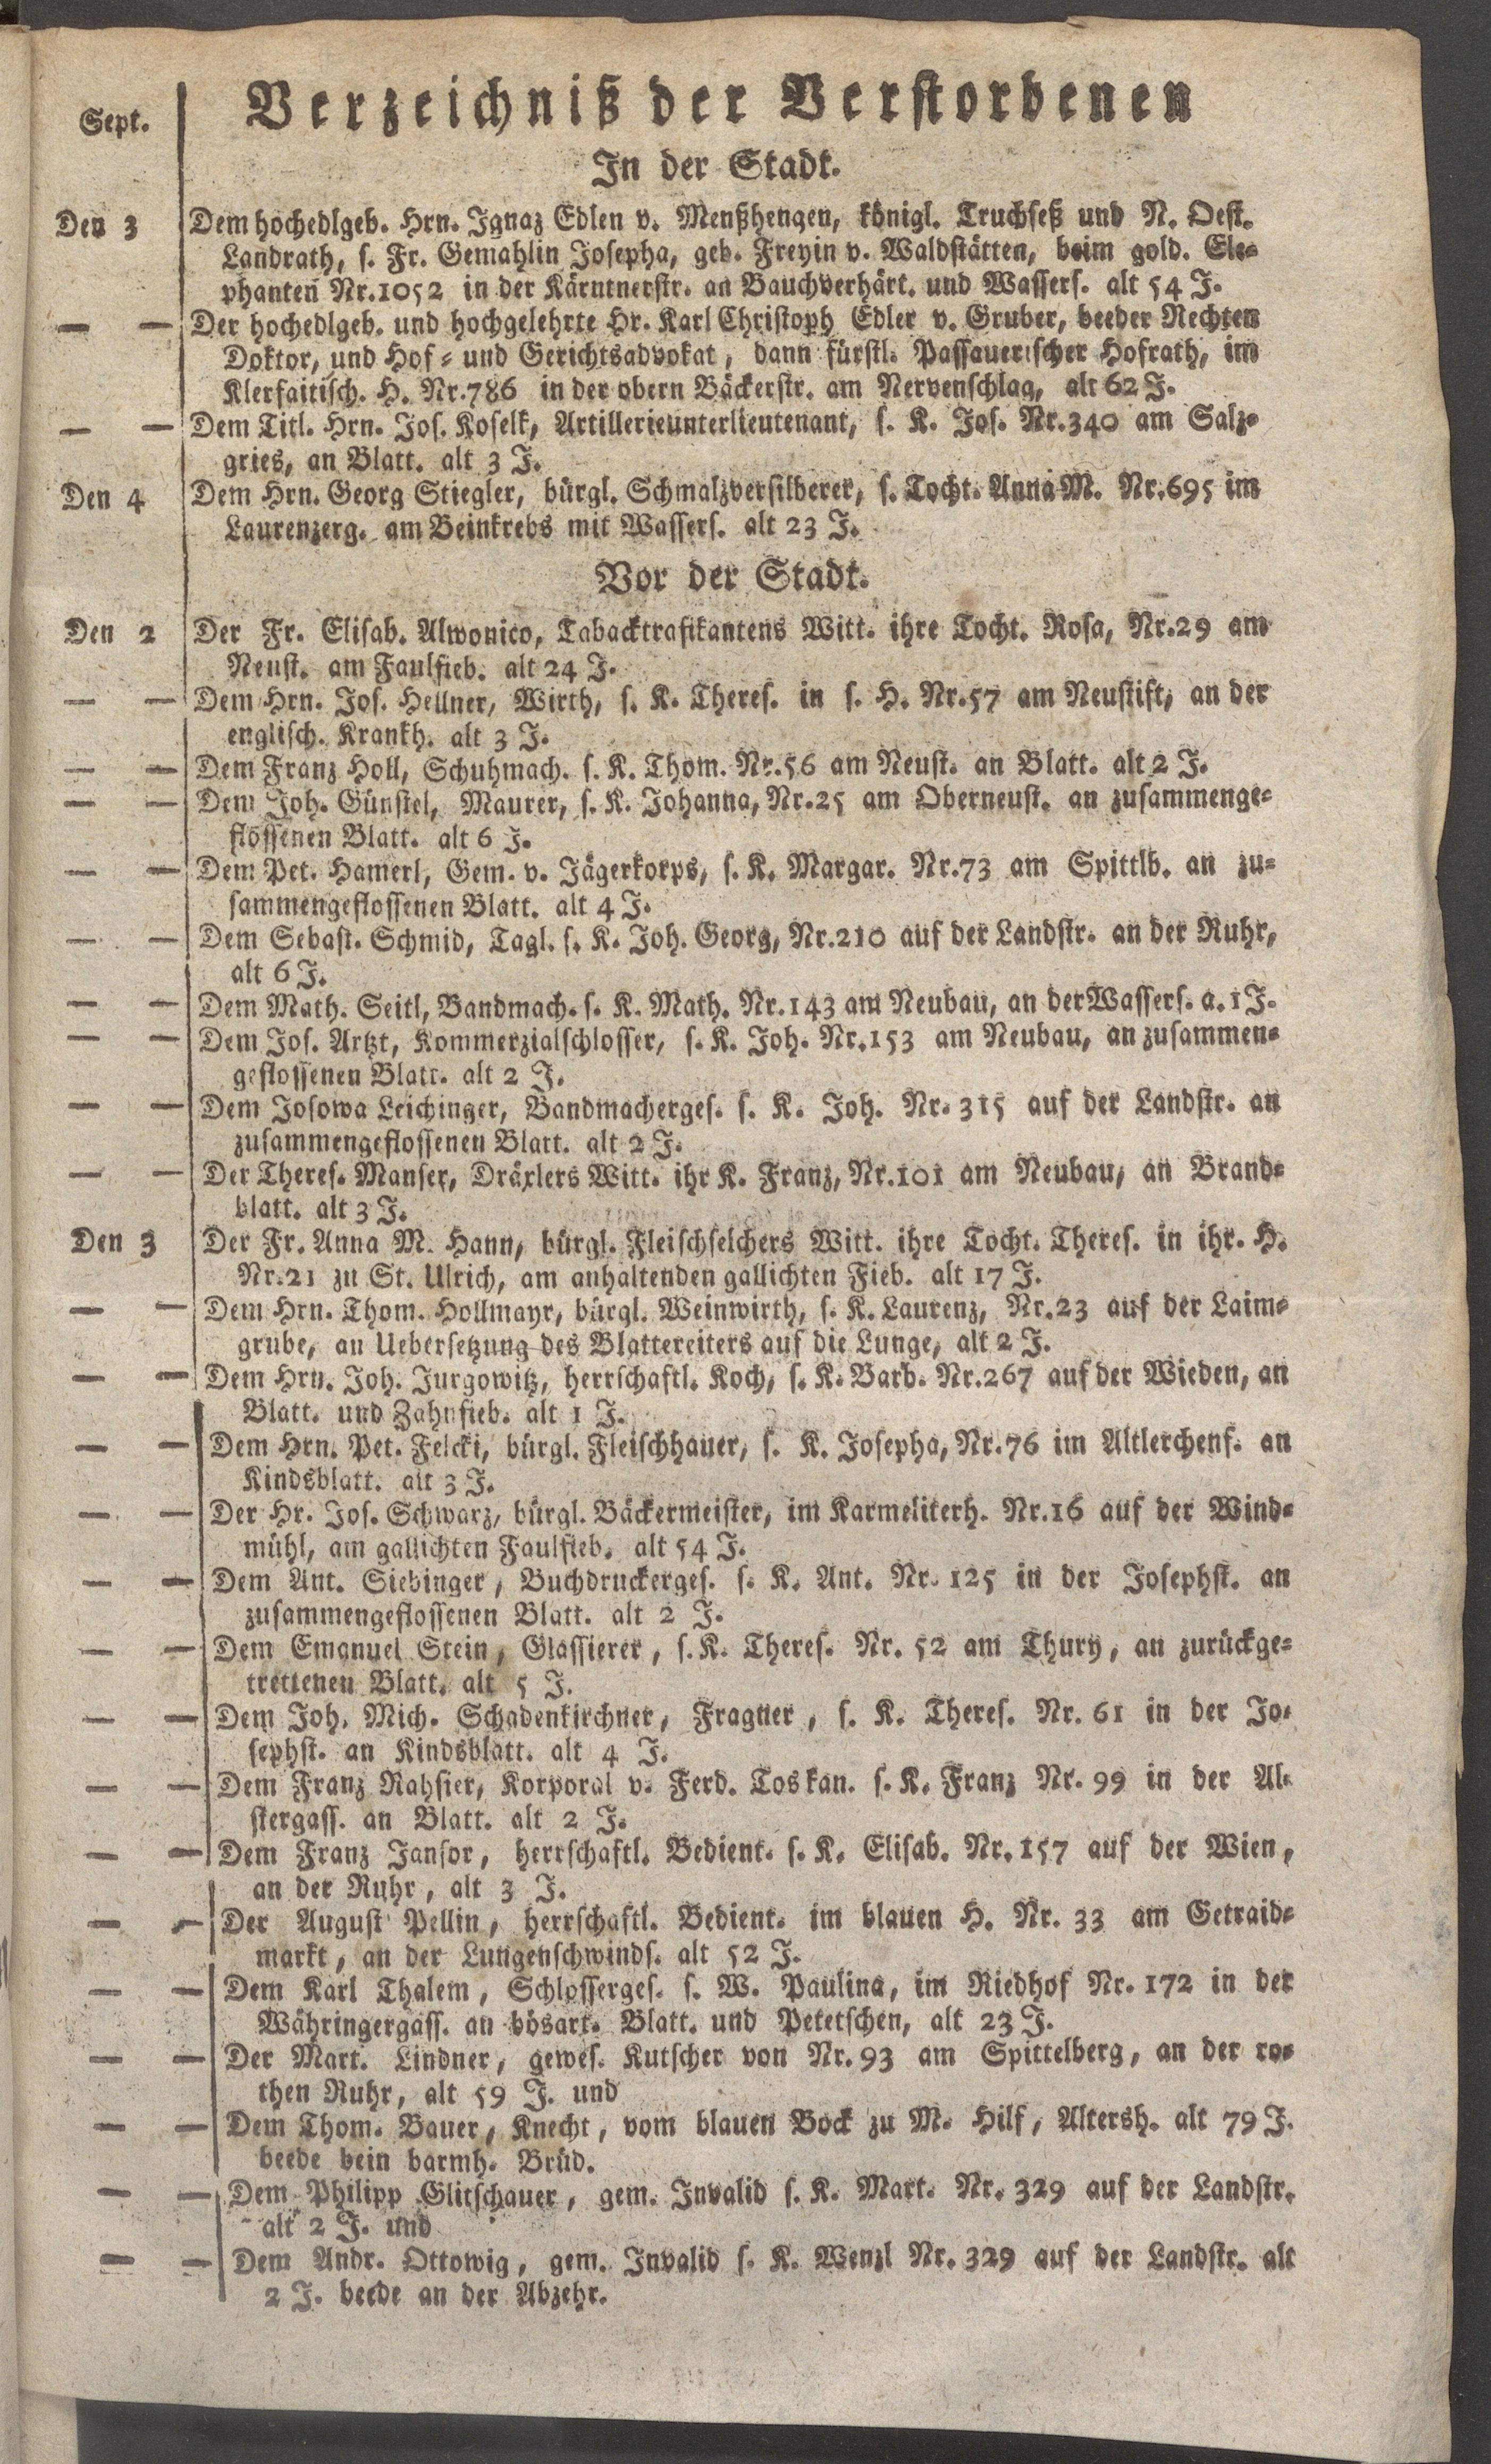 Verzeichniß der Verstorbenen
Sept.
In der Stadt.
Den 3 Dem hochedlgeb. Hrn. Ignaz Edlen v. Menßhengen, königl. Truchseß und N. Oest.
Landrath, s. Fr. Gemahlin Josepha, geb. Freyin v. Waldstätten, beim gold. Ele-
phanten Nr.1052 in der Kärntnerstr. an Bauchverhärt. und Wassers. alt 54 J.
— — Der hochedlgeb. und hochgelehrte Hr. Karl Christoph Edler v. Gruber, beeder Rechten
Doktor, und Hof- und Gerichtsadvokat, dann fürstl. Passauerischer Hofrath, im
Klerfaitisch. H. Nr.786 in der obern Bäckerstr. am Nervenschlag, alt 62 J.
— — Dem Titl. Hrn. Jos. Koselk, Artillerieunterlieutenant, s. K. Jos. Nr.340 am Salz-
gries, an Blatt. alt 3 J.
Den 4 Dem Hrn. Georg Stiegler, bürgl. Schmalzversilberer, s. Tocht. Anna M. Nr.695 im
Laurenzerg. am Beinkrebs mit Wassers. alt 23 J.
Vor der Stadt.
Den 2 Der Fr. Elisab. Alwonico, Tabacktrafikantens Witt. ihre Tocht. Rosa, Nr.29 am
Neust. am Faulfieb. alt 24 J.
— — Dem Hrn. Jos. Hellner, Wirth, s. K. Theres. in s. H. Nr.57 am Neustift, an der
englisch. Krankh. alt 3 J.
— — Dem Franz Holl, Schuhmach. s. K. Thom. Nr.56 am Neust. an Blatt. alt 2 J.
— — Dem Joh. Günstel, Maurer, s. K. Johanna, Nr.25 am Oberneust. an zusammenge-
flossenen Blatt. alt 6 J.
— — Dem Pet. Hamerl, Gem. v. Jägerkorps, s. K. Margar. Nr.73 am Spittlb. an zu-
sammengeflossenen Blatt. alt 4 J.
— — Dem Sebast. Schmid, Tagl. s. K. Joh. Georg, Nr.210 auf der Landstr. an der Ruhr,
alt 6 J.
— — Dem Math. Seitl, Bandmach. s. K. Math. Nr.143 am Neubau, an der Wassers. a. 1 J.
— — Dem Jos. Artzt, Kommerzialschlosser, s. K. Joh. Nr.153 am Neubau, an zusammen-
geflossenen Blatt. alt 2 J.
— — Dem Josowa Leichinger, Bandmacherges. s. K. Joh. Nr. 315 auf der Landstr. an
zusammengeflossenen Blatt. alt 2 J.
— — Der Theres. Manser, Dräxlers Witt. ihr K. Franz, Nr.101 am Neubau, an Brand-
blatt. alt 3 J.
Den 3 Der Fr. Anna M. Hann, bürgl. Fleischselchers Witt. ihre Tocht. Theres. in ihr. H.
Nr.21 zu St. Ulrich, am anhaltenden gallichten Fieb. alt 17 J.
— — Dem Hrn. Thom. Hollmayr, bürgl. Weinwirth, s. K. Laurenz, Nr.23 auf der Laim-
grube, an Uebersetzung des Blattereiters auf die Lunge, alt 2 J.
— — Dem Hrn. Joh. Jurgowitz, herrschaftl. Koch, s. K. Barb. Nr.267 auf der Wieden, an
Blatt. und Zahnfieb. alt 1 J.
— — Dem Hrn. Pet. Felcki, bürgl. Fleischhauer, s. K. Josepha, Nr.76 im Altlerchenf. an
Kindsblatt. alt 3 J.
— — Der Hr. Jos. Schwarz, bürgl. Bäckermeister, im Karmeliterh. Nr.16 auf der Wind-
mühl, am gallichten Faulfieb. alt 54 J.
— — Dem Ant. Siebinger, Buchdruckerges. s. K. Ant. Nr. 125 in der Josephst. an
zusammengeflossenen Blatt. alt 2 J.
— — Dem Emanuel Stein, Glassierer, s. K. Theres. Nr. 52 am Thury, an zurückge-
trettenen Blatt. alt 5 J.
— — Dem Joh. Mich. Schadenkirchner, Fragner, s. K. Theres. Nr. 61 in der Jo-
sephst. an Kindsblatt. alt 4 J.
— — Dem Franz Rahsier, Korporal v. Ferd. Toskan. s. K. Franz Nr. 99 in der Al-
stergass. an Blatt. alt 2 J.
— — Dem Franz Jansor, herrschaftl. Bedient. s. K. Elisab. Nr. 157 auf der Wien,
an der Ruhr, alt 3 J.
— — Der August Pellin, herrschaftl. Bedient. im blauen H. Nr. 33 am Getraid-
markt, an der Lungenschwinds. alt 52 J.
— — Dem Karl Thalem, Schlosserges. s. W. Paulina, im Riedhof Nr. 172 in der
Währingergass. an bösart. Blatt. und Petetschen, alt 23 J.
— — Der Mart. Lindner, gewes. Kutscher von Nr. 93 am Spittelberg, an der ro-
then Ruhr, alt 59 J. und
— — Dem Thom. Bauer, Knecht, vom blauen Bock zu M. Hilf, Altersh. alt 79 J.
beede bein barmh. Brüd.
— — Dem Philipp Glitschauer, gem. Invalid s. K. Mart. Nr. 329 auf der Landstr.
alt 2 J. und
— — Dem Andr. Ottowig, gem. Invalid s. K. Wenzl Nr. 329 auf der Landstr. alt
2 J. beede an der Abzehr.